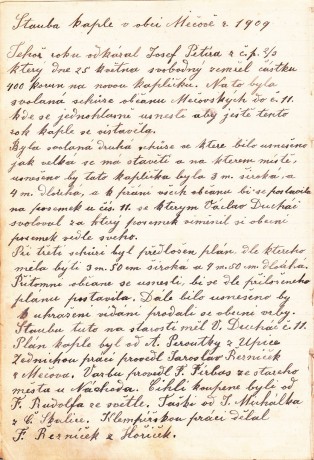 Stavba kaple v obci Mečově r. 1909
Tehož roku odkázal Josef Petira z č.p. 2/3
který dne 25 května svobodný zemřel částku
400 korun na novou kapličku. Na to byla
svolaná schůze občanu Mečovských do č. 11.
kde se jednohlasně usnesla aby ještě tento
rok kaple se vistavěla.
Byla svolaná druhá schůze ve ktere bilo usnešeno
jak velká se má stavěti a na kterem místě,
usnešeno by tato kaplička byla 3 m. široká a
4 m. dlouhá, a k přání všech občanu bi se postavila
na posemek u čís. 11. se kterym Václav Ducháč
svoloval za který posemek viměnil si obecní
posemek vedle svého.
Při třetí schůzi byl předložen plán dle ktereho
měla byti 3 m. 50 cm široka a 4 m. 50 cm dlouhá.
Přítomní občane se usnesli, bi se dle přiloženeho
planu postavila. Dále bilo usneseno by
k uhrazení vidání prodali se obecne vrby.
Stavbu tuto na starosti měl V. Ducháč č. 11.
Plán kaple byl od A. Peroutky z Upice
Zednickou práci provedl Jaroslav Řezníček
z Mečova. Varbu provedl F. Firbas ze stareho
města u Náchoda. Cihli koupene byli od
F. Rudolfa ze světle. Taški od J. Muhálka
z Č. Skalice. Klempířskou práci dělal
F. Řezníček z Hořiček.